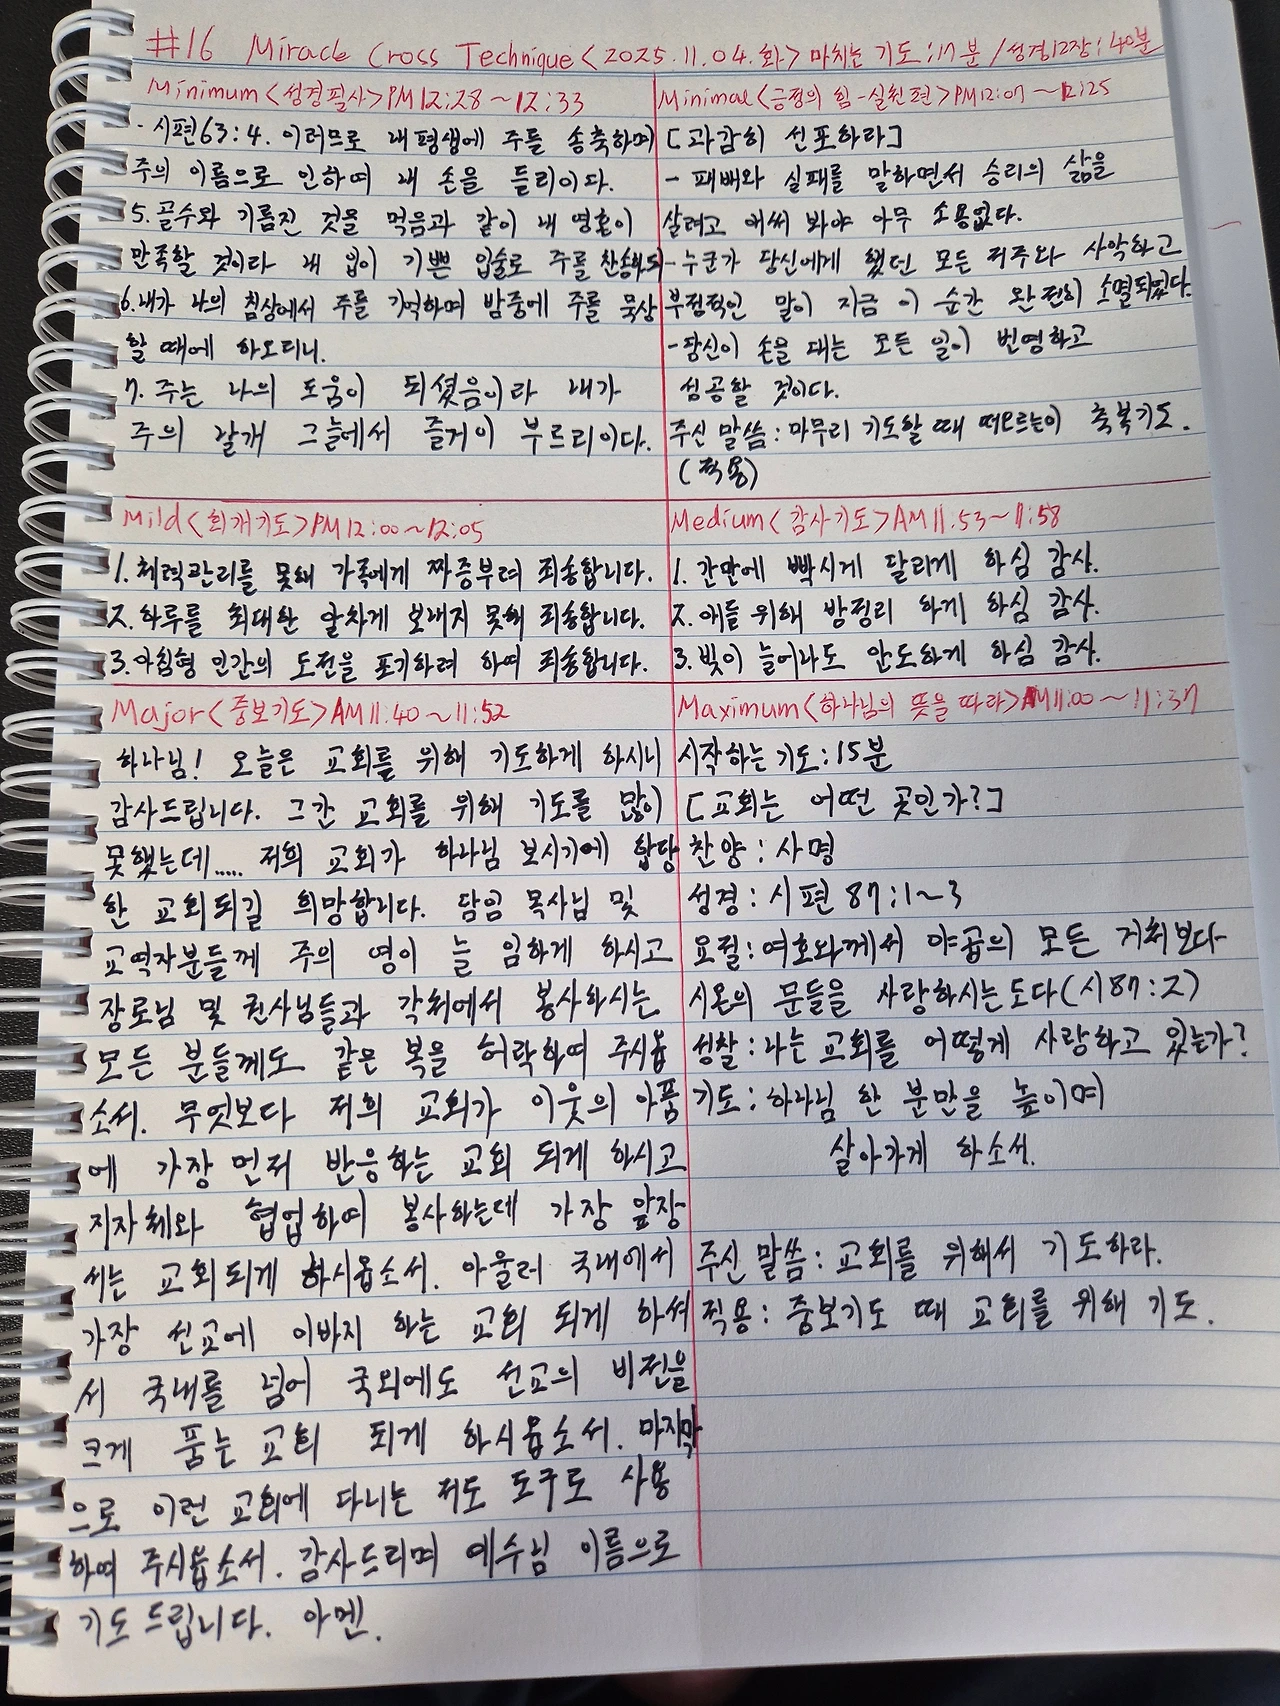 #16 Miracle Cross Technique<2025.11.04.화> 마치는 기도:17분 /성경12장:40분
Minimum<성경필사>PM12:28~12:33
- 시편63:4. 이러므로 내 평생에 주를 송축하며
주의 이름으로 인하여 내 손을 들리이다.
5. 골수와 기름진 것을 먹음과 같이 내 영혼이
만족할 것이라 내 입이 기쁜 입술로 주를 찬송하되
6. 내가 나의 침상에서 주를 기억하며 밤중에 주를 묵상
할 때에 하오리니.
7. 주는 나의 도움이 되셨음이라 내가
주의 날개 그늘에서 즐거이 부르리이다.
Minimal<긍정의 힘-실천편>PM12:07~12:25
[과감히 선포하라]
- 패배와 실패를 말하면서 승리의 삶을
살려고 애써 봐야 아무 소용없다.
- 누군가 당신에게 했던 모든 저주와 사악하고
부정적인 말이 지금 이 순간 완전히 소멸되었다.
- 당신이 손을 대는 모든 일이 번영하고
성공할 것이다.
주신 말씀 : 마무리 기도할 때 떠오르는이 축복기도.
(적용)
Mild<회개기도>PM12:00~12:05
1. 체력관리를 못해 가족에게 짜증부려 죄송합니다.
2. 하루를 최대한 알차게 보내지 못해 죄송합니다.
3. 아침형 인간의 도전을 포기하려 하여 죄송합니다.
Medium<감사기도>AM11:53~11:58
1. 간만에 빡시게 달리게 하심 감사.
2. 애들 위해 방정리 하게 하심 감사.
3. 빚이 늘어나도 안도하게 하심 감사.
Major<중보기도>AM11:40~11:52
하나님! 오늘은 교회를 위해 기도하게 하시니
감사드립니다. 그간 교회를 위해 기도를 많이
못했는데..... 저희 교회가 하나님 보시기에 합당
한 교회되길 희망합니다. 담임 목사님 및
교역자분들께 주의 영이 늘 임하게 하시고
장로님 및 권사님들과 각처에서 봉사하시는
모든 분들께도 같은 복을 허락하여 주시옵
소서. 무엇보다 저희 교회가 이웃의 아픔
에 가장 먼저 반응하는 교회 되게 하시고
지자체와 협업하여 봉사하는데 가장 앞장
서는 교회되게 하시옵소서. 아울러 국내에서
가장 선교에 이바지 하는 교회 되게 하셔
서 국내를 넘어 국외에도 선교의 비전을
크게 품는 교회 되게 하시옵소서. 마지막
으로 이런 교회에 다니는 저도 도구로 사용
하여 주시옵소서. 감사드리며 예수님 이름으로
기도드립니다. 아멘.
Maximum<하나님의 뜻을 따라>AM11:00~11:37
시작하는 기도 : 15분
[교회는 어떤 곳인가?]
찬양 : 사명
성경 : 시편 87:1~3
요절 : 여호와께서 야곱의 모든 거처보다
시온의 문들을 사랑하시는도다(시87:2)
성찰 : 나는 교회를 어떻게 사랑하고 있는가?
기도 : 하나님 한 분만을 높이며
살아가게 하소서.
주신 말씀 : 교회를 위해서 기도하라.
적용 : 중보기도 때 교회를 위해 기도.